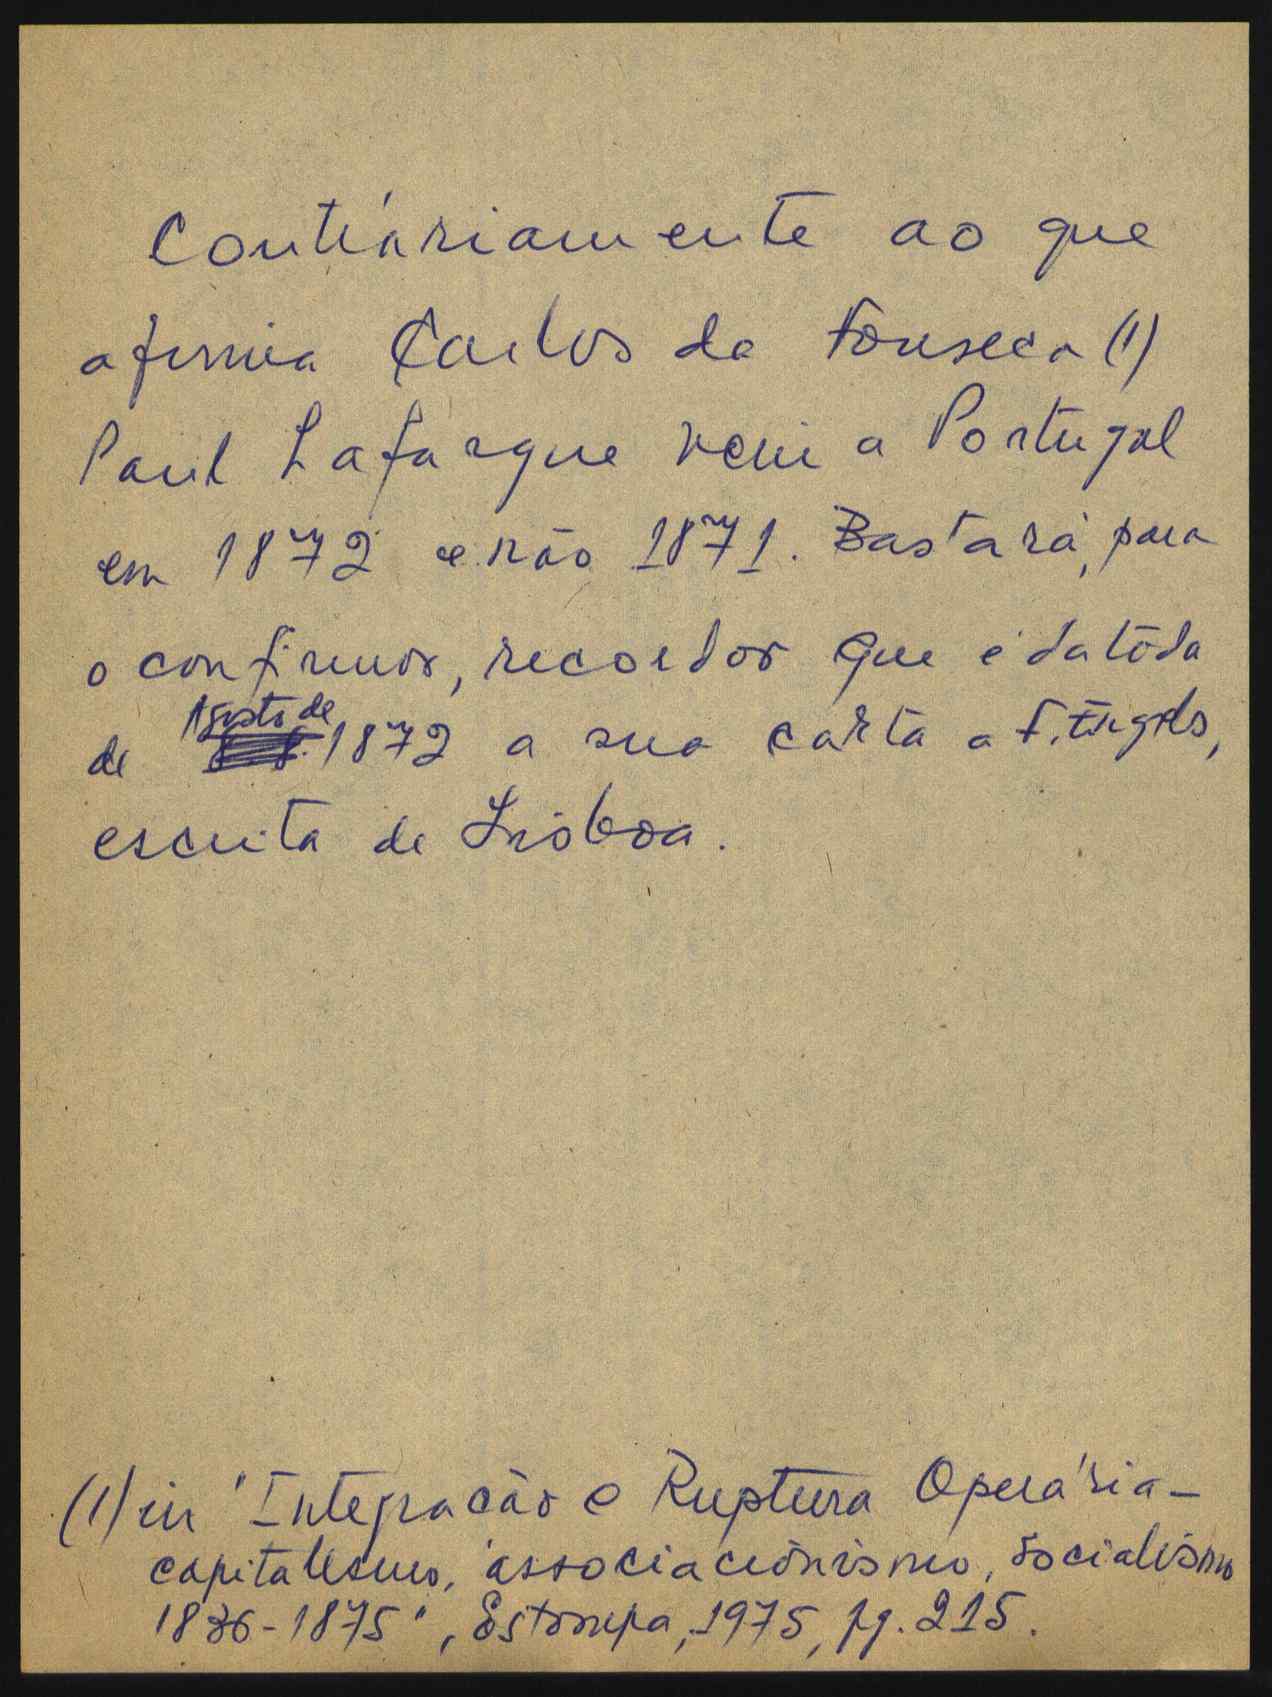 Contráriamente ao que
afirma Carlos da Fonseca (1)
Paul Lafargue vem a Portugal
em 1872 e não 1871. Bastará, para
o confirmar, recordar que é datada
de Agosto de 1872 a sua carta a F. Engels,
escrita de Lisboa.
(1) in "Integração e Ruptura Operária-
capitalismo, associacionismo, socialismo
1836-1875", Estampa, 1975, pg. 215.